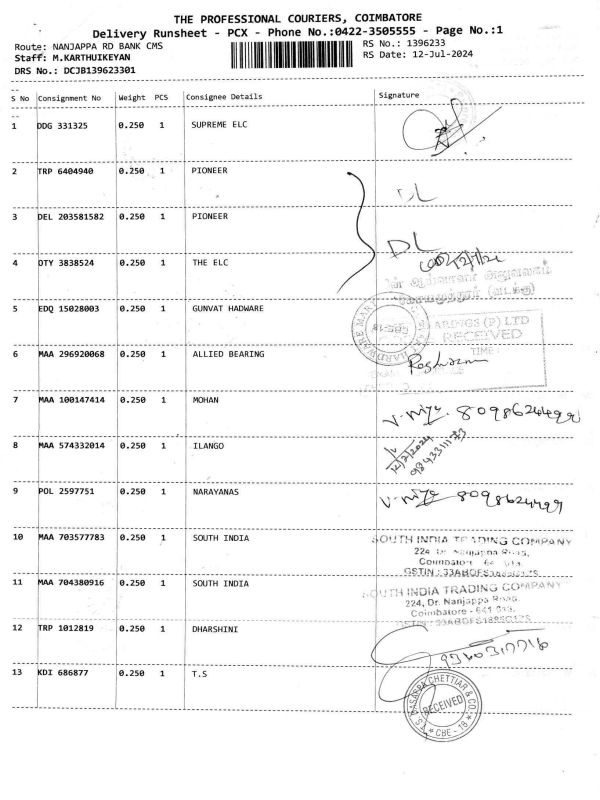 THE PROFESSIONAL COURIERS, COIMBATORE
Delivery Runsheet - PCX - Phone No.:0422-3505555 - Page No.:1
Route: NANJAPPA RD BANK CMS
RS No.: 1396233
Staff: M.KARTHUIKEYAN
RS Date: 12-Jul-2024
DRS No.: DCJB139623301
S No Consignment No Weight PCS Consignee Details Signature
1 DDG 331325 0.250 1 SUPREME ELC
2 TRP 6404940 0.250 1 PIONEER
DL
3 DEL 203581582 0.250 1 PIONEER
DL
4 DTY 3838524 0.250 1 THE ELC
5 EDQ 15028003 0.250 1 GUNVAT HADWARE
ARINGS (P) LTD
RECEIVED
TIME:
6 MAA 296920068 0.250 1 ALLIED BEARING
7 MAA 100147414 0.250 1 MOHAN
8098624499
8 MAA 574332014 0.250 1 ILANGO
12/7/2024
9 POL 2597751 0.250 1 NARAYANAS
8098624499
10 MAA 703577783 0.250 1 SOUTH INDIA
SOUTH INDIA TRADING COMPANY
224, Dr. Nanjappa Road,
11 MAA 704380916 0.250 1 SOUTH INDIA
SOUTH INDIA TRADING COMPANY
224, Dr. Nanjappa Road,
Coimbatore - 641 018.
12 TRP 1012819 0.250 1 DHARSHINI
13 KDI 686877 0.250 1 T.S
RECEIVED
CBE - 18